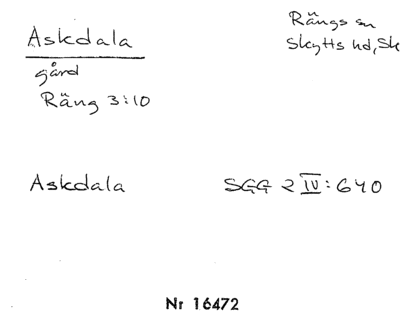 Askdala
Rängs sn
Skytts hd, Sk
gård
Räng 3:10
Askdala SGG 2 IV: 640
Nr 16472